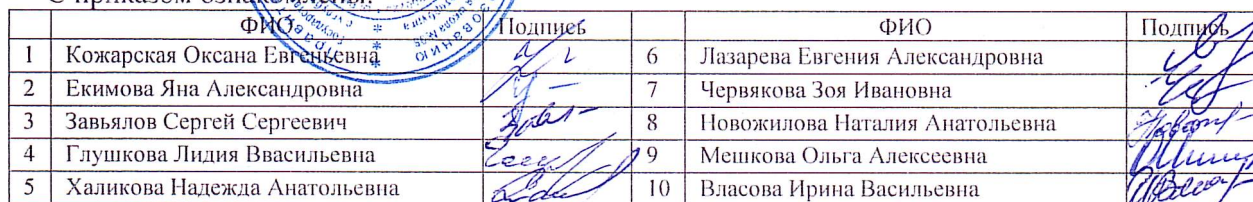 С приказом ознакомлены:
ФИО Подпись ФИО Подпись
1 Кожарская Оксана Евгеньевна 6 Лазарева Евгения Александровна
2 Екимова Яна Александровна 7 Червякова Зоя Ивановна
3 Завьялов Сергей Сергеевич 8 Новожилова Наталия Анатольевна
4 Глушкова Лидия Ввасильевна 9 Мешкова Ольга Алексеевна
5 Халикова Надежда Анатольевна 10 Власова Ирина Васильевна